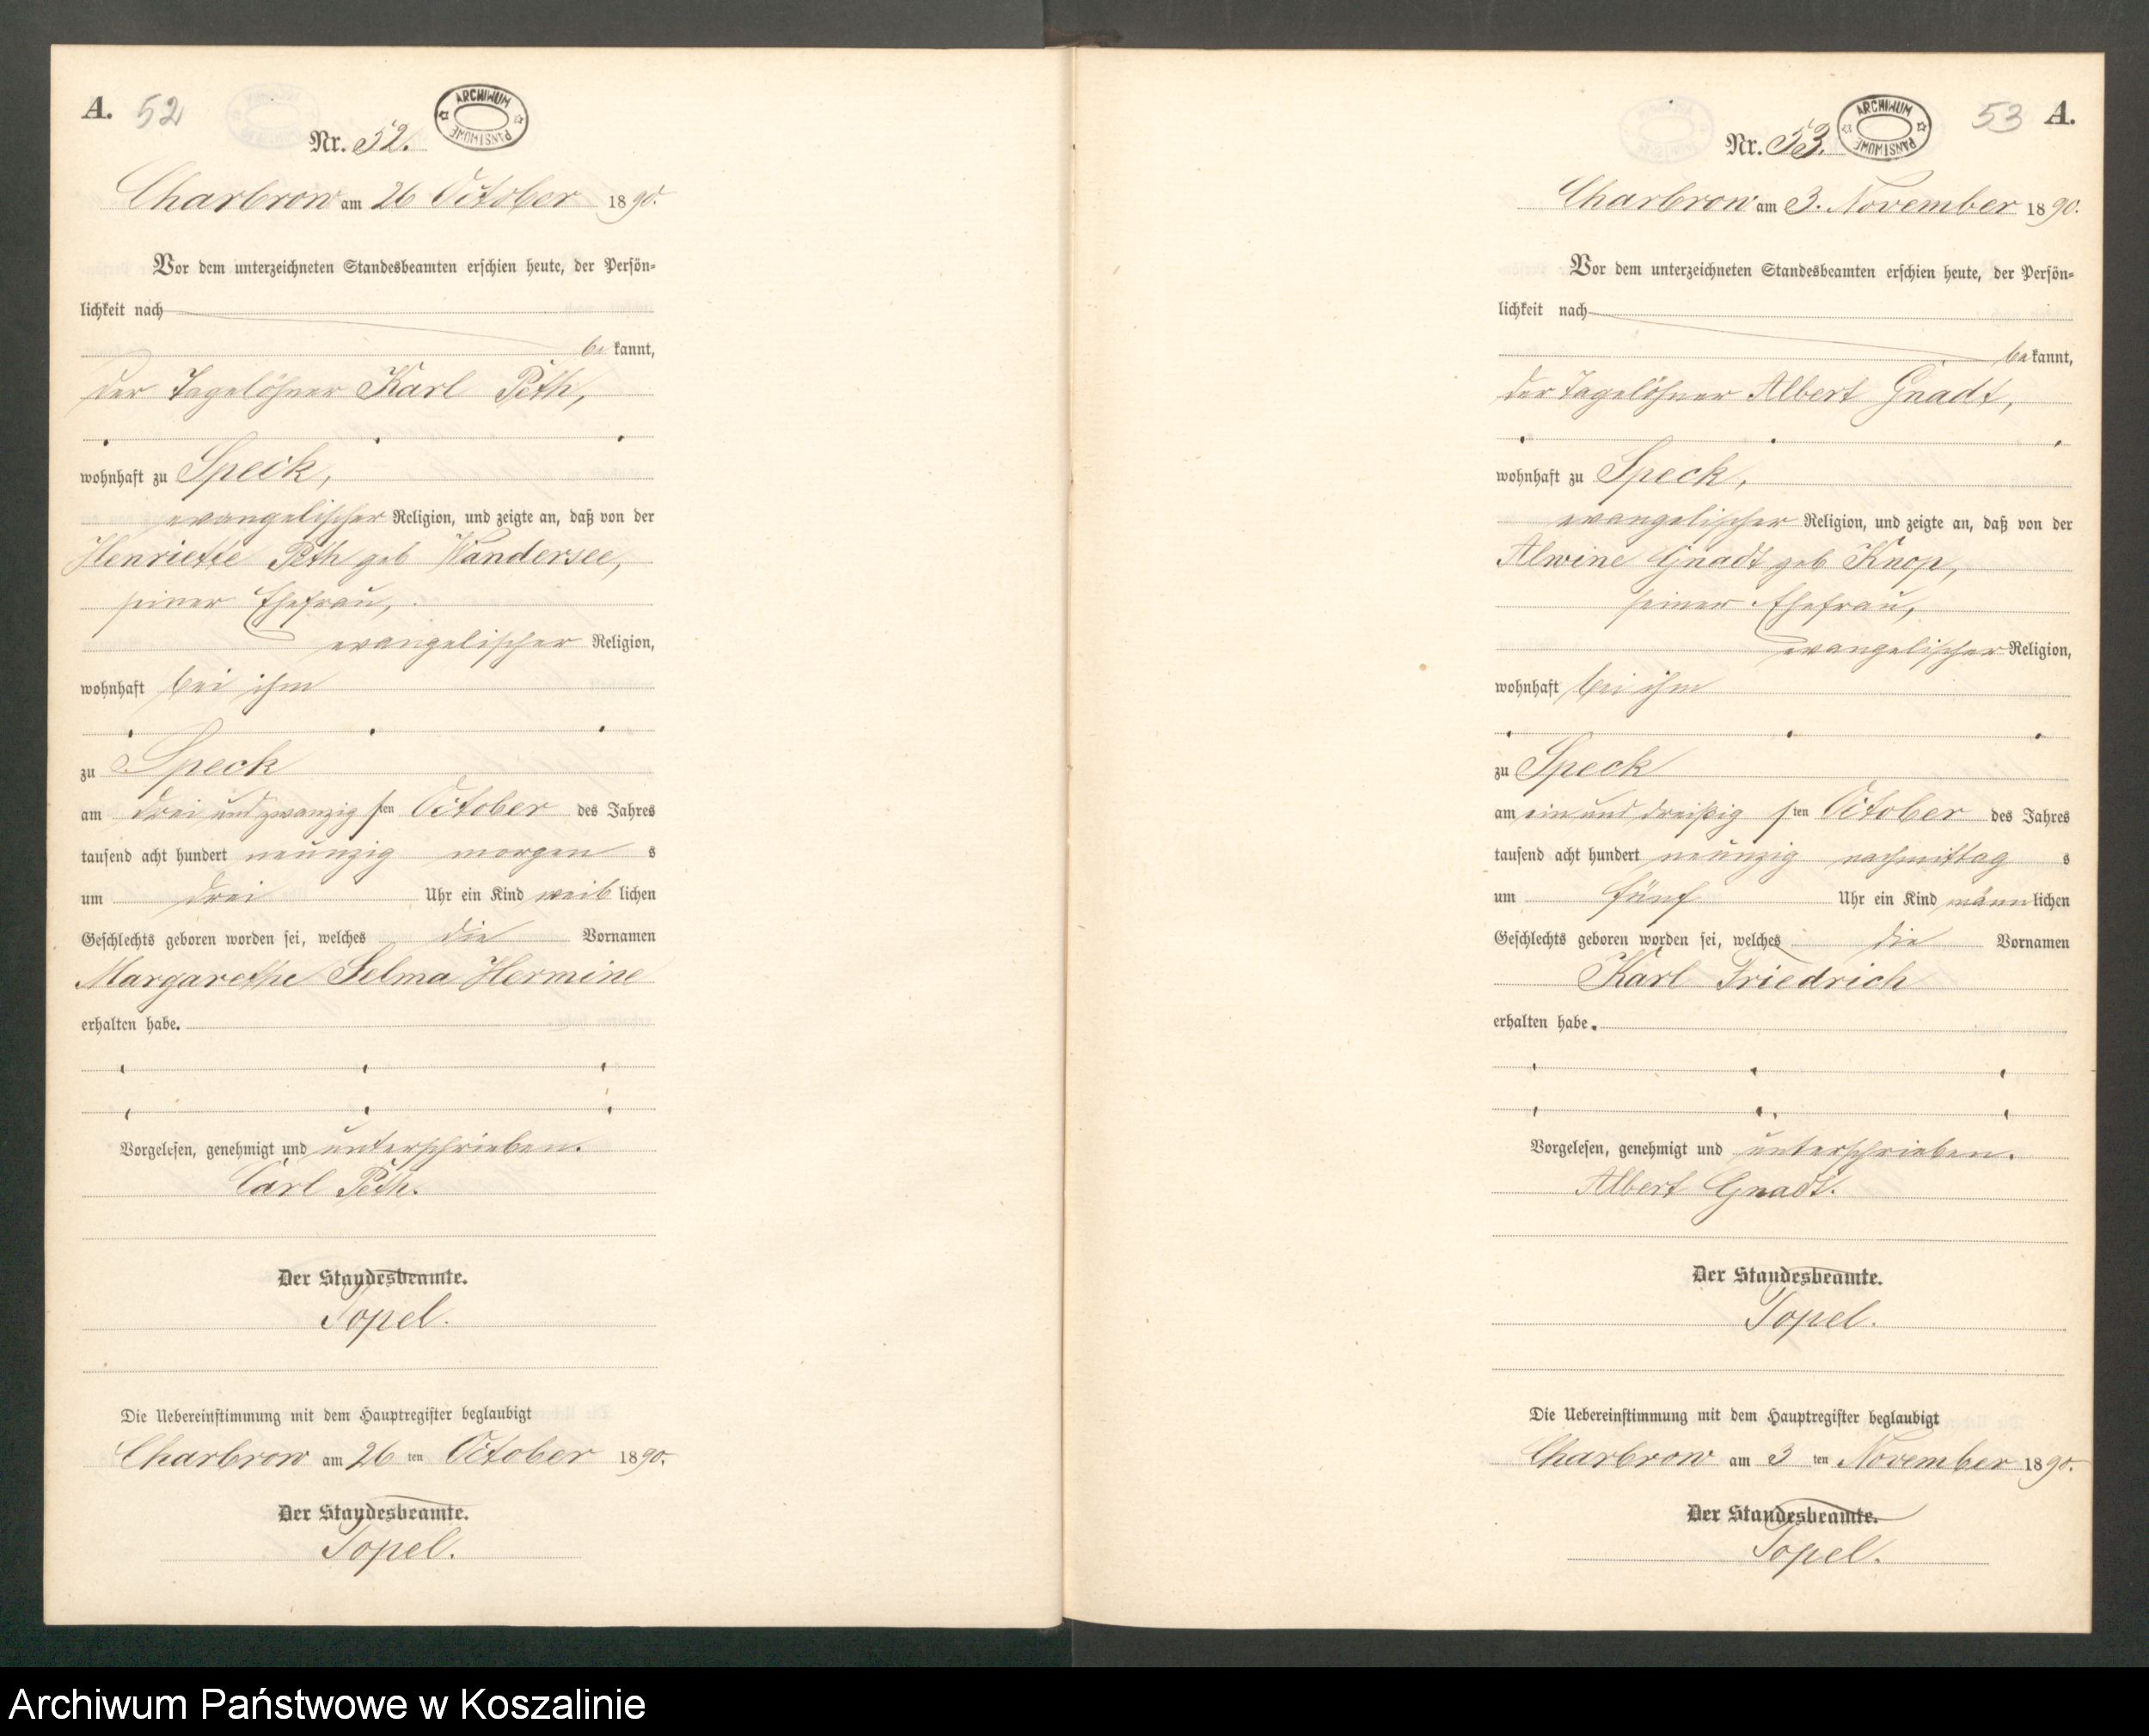 A. 52
ARCHIWUM PAŃSTWOWE
Nr. 52.
Charbrow am 26 October 1890.
Vor dem unterzeichneten Standesbeamten erschien heute, der Persön-
lichkeit nach
bekannt,
der Tagelöhner Karl Peth,
wohnhaft zu Speck,
evangelischer Religion, und zeigte an, daß von der
Henriette Peth geb Wandersee,
seiner Ehefrau,
evangelischer Religion,
wohnhaft bei ihm
zu Speck
am drei und zwanzigsten October des Jahres
tausend acht hundert neunzig morgens
um drei Uhr ein Kind weiblichen
Geschlechts geboren worden sei, welches die Vornamen
Margarethe Selma Hermine
erhalten habe.
Vorgelesen, genehmigt und unterschrieben.
Carl Peth.
Der Standesbeamte.
Topel.
Die Uebereinstimmung mit dem Hauptregister beglaubigt
Charbrow am 26 ten October 1890.
Der Standesbeamte.
Topel.
53 A.
ARCHIWUM PAŃSTWOWE
Nr. 53.
Charbrow am 3. November 1890.
Vor dem unterzeichneten Standesbeamten erschien heute, der Persön-
lichkeit nach
bekannt,
der Tagelöhner Albert Gnadt,
wohnhaft zu Speck,
evangelischer Religion, und zeigte an, daß von der
Alwine Gnadt geb Knop,
seiner Ehefrau,
evangelischer Religion,
wohnhaft bei ihm
zu Speck
am ein und dreißigsten October des Jahres
tausend acht hundert neunzig nachmittags
um fünf Uhr ein Kind männlichen
Geschlechts geboren worden sei, welches die Vornamen
Karl Friedrich
erhalten habe.
Vorgelesen, genehmigt und unterschrieben.
Albert Gnadt.
Der Standesbeamte.
Topel.
Die Uebereinstimmung mit dem Hauptregister beglaubigt
Charbrow am 3 ten November 1890.
Der Standesbeamte.
Topel.
Archiwum Państwowe w Koszalinie